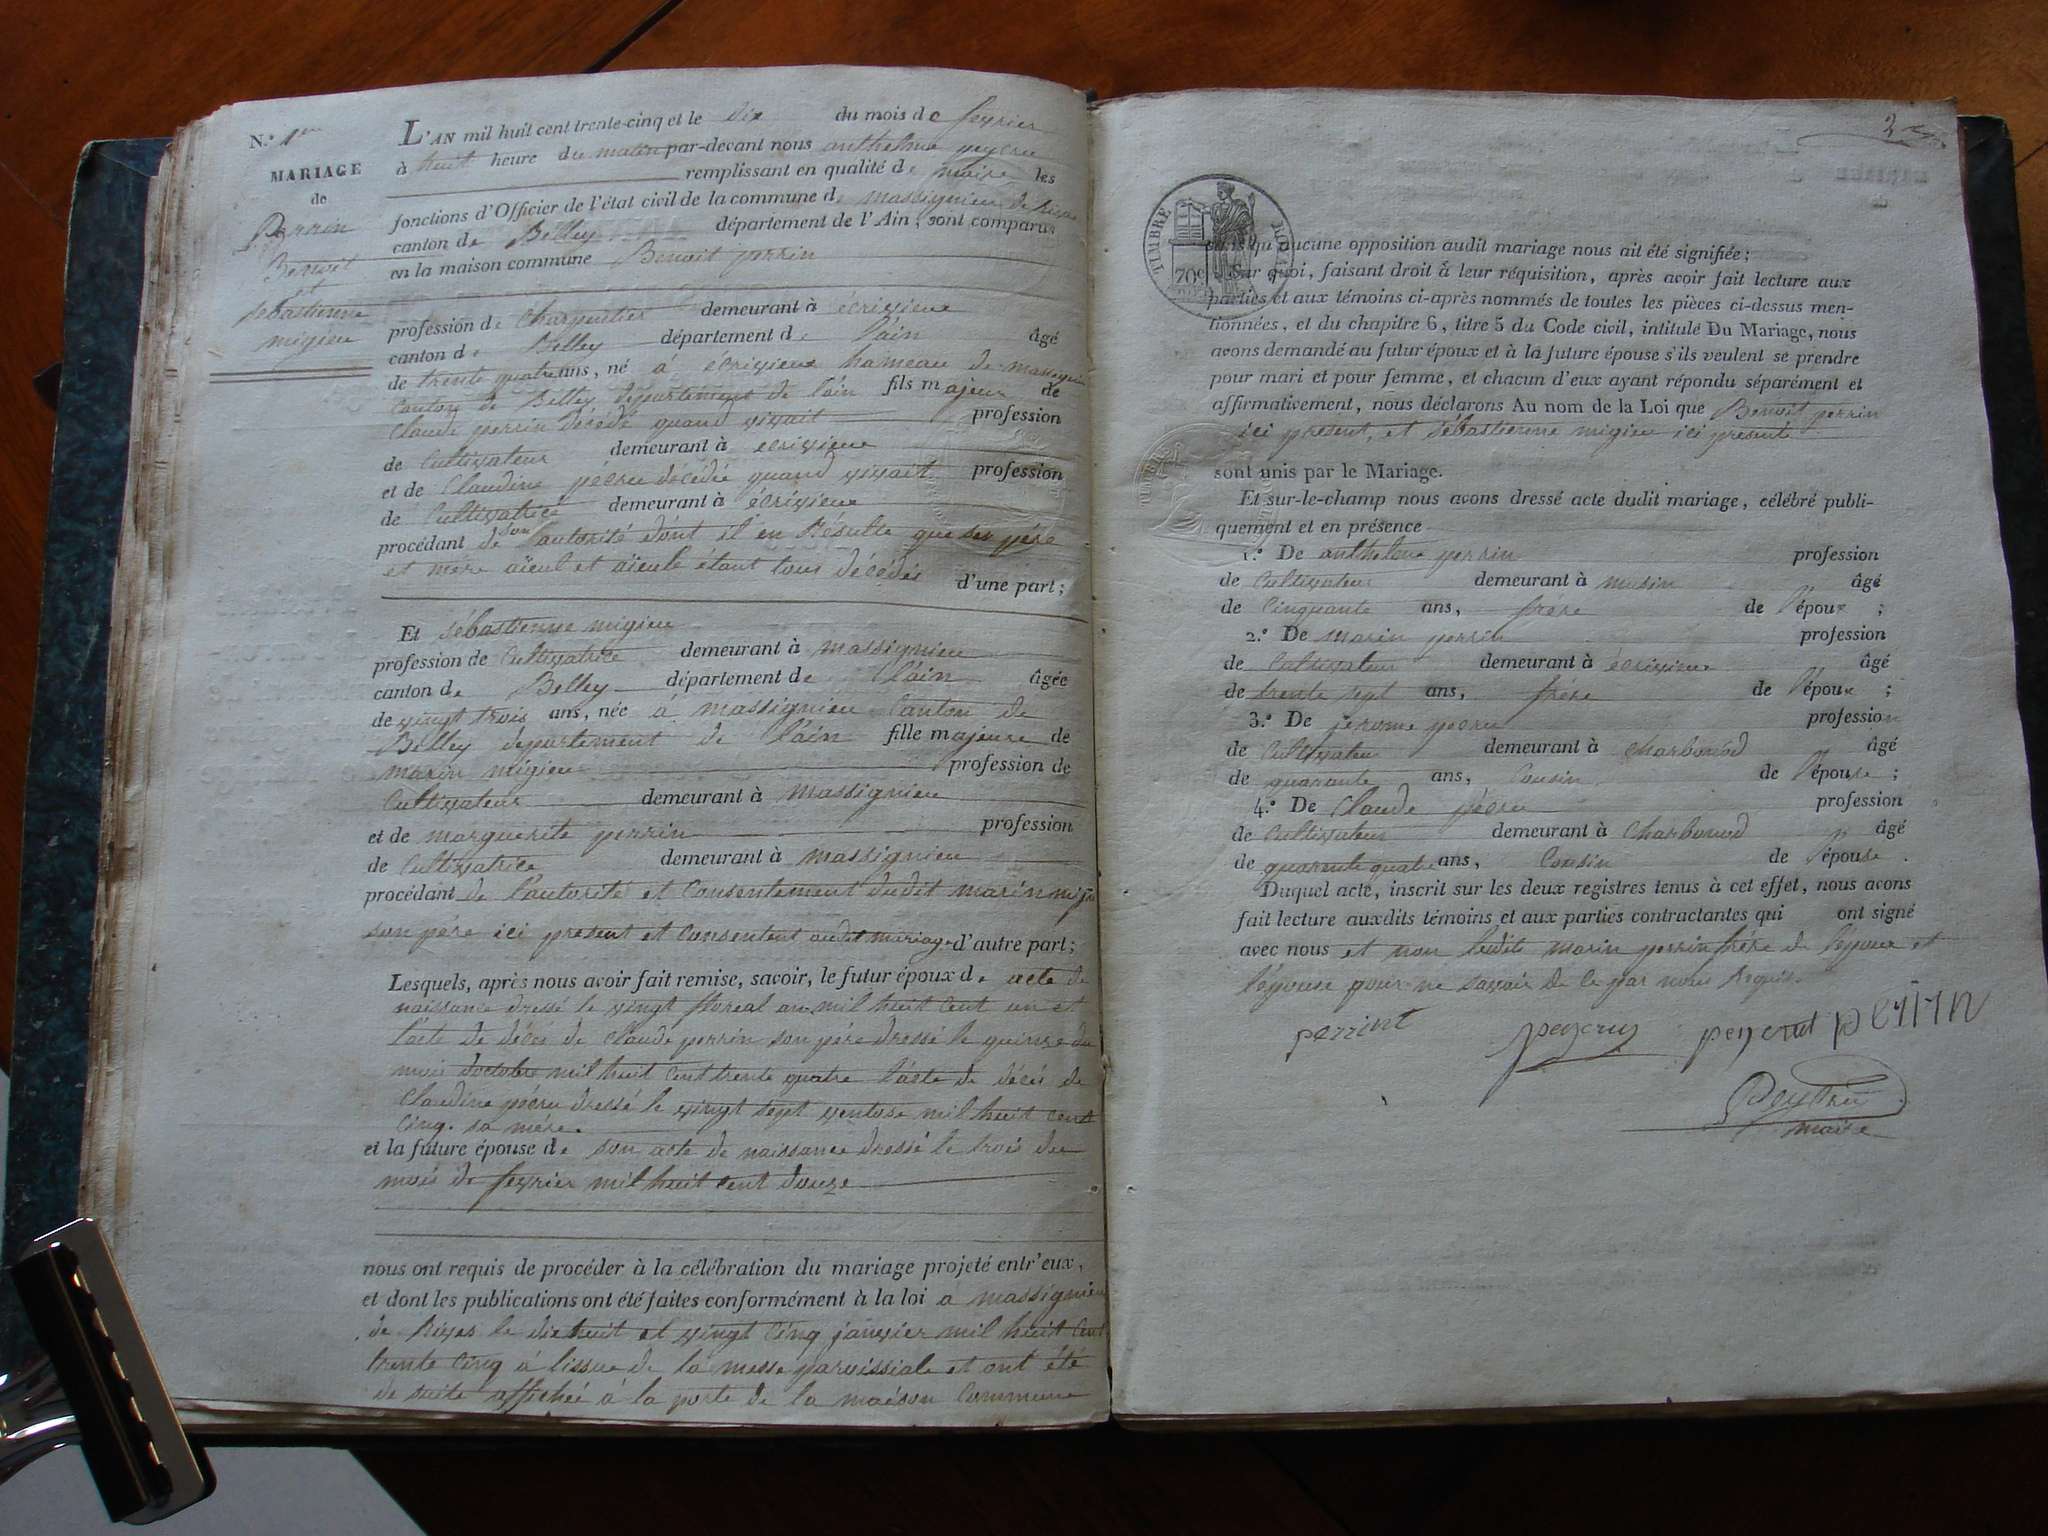 N.º 1er
MARIAGE
de
Perrin
Benoit
et
sébastienne
migieu
L'AN mil huit cent trente-cinq et le dix du mois de fevrier
à huit heure du matin par-devant nous anthelme peycru
remplissant en qualité de maire les
fonctions d'Officier de l'état civil de la commune de massignieu de Rives
canton de Belley département de l'Ain, sont comparus
en la maison commune Benoit perrin
profession de charpentier demeurant à écrivieux
canton de Belley département de l'ain âgé
de trente quatre ans, né à écrivieux hameau de massignieu
canton de Belley département de l'ain fils majeur de
Claude perrin décédé quand vivait profession
de Cultivateur demeurant à ecrivieux
et de Claudine pécru décédée quand vivait profession
de Cultivatrice demeurant à écrivieux
procédant de son l'autorité dont il en Résulte que ses père
et mère aïeul et aïeule étant tous décédés d'une part;
Et sébastienne migieu
profession de Cultivatrice demeurant à massignieu
canton de Belley département de l'ain âgée
de vingt trois ans, née à massignieu Canton de
Belley departement de l'ain fille majeure de
marin migieu profession de
Cultivateur demeurant à massignieu
et de marguerite perrin profession
de Cultivatrice demeurant à massignieu
procédant de l'autorité et Consentement dudit marin migieu
son père ici present et Consentent audit mariage d'autre part;
Lesquels, après nous avoir fait remise, savoir, le futur époux de acte de
naissance dressé le vingt floréal an mil huit Cent un et
l'acte de décés de Claude perrin son père dressé le quinze du
mois d'octobre mil huit Cent trente quatre l'acte de décés de
Claudine pécru dressé le vingt sept ventose mil huit cent
Cinq. sa mère.
et la future épouse de son acte de naissance dressé le trois du
mois de fevrier mil huit cent douze
nous ont requis de procéder à la célébration du mariage projeté entr'eux,
et dont les publications ont été faites conformément à la loi a massignieu
de Rives le dix huit et vingt Cinq janvier mil huit Cent
trente Cinq à l'issue de la messe paroissiale et ont été
de suite affichée à la porte de la maison Commune
2
TIMBRE ROYAL
70c
sans qu'aucune opposition audit mariage nous ait été signifiée;
Sur quoi, faisant droit à leur réquisition, après avoir fait lecture aux
parties et aux témoins ci-après nommés de toutes les pièces ci-dessus men-
tionnées, et du chapitre 6, titre 5 du Code civil, intitulé Du Mariage, nous
avons demandé au futur époux et à la future épouse s'ils veulent se prendre
pour mari et pour femme, et chacun d'eux ayant répondu séparément et
affirmativement, nous déclarons Au nom de la Loi que Benoit perrin
ici present, et sébastienne migieu ici presente
sont unis par le Mariage.
Et sur-le-champ nous avons dressé acte dudit mariage, célébré publi-
quement et en présence
1.º De anthelme perrin profession
de Cultivateur demeurant à musin âgé
de Cinquante ans, frére de l'époux ;
2.º De marin perrin profession
de Cultivateur demeurant à écrivieux âgé
de trente sept ans, frére de l'époux ;
3.º De jerome pecru profession
de Cultivateur demeurant à charbonod âgé
de quarante ans, Cousin de l'épouse ;
4.º De Claude pécru profession
de Cultivateur demeurant à Charbonod âgé
de quarente quatre ans, Cousin de l'épouse .
Duquel acte, inscrit sur les deux registres tenus à cet effet, nous avons
fait lecture auxdits témoins et aux parties contractantes qui ont signé
avec nous et non ledit marin perrin frére de l'époux et
l'épouse pour ne savoir de ce par nous Requis.
perrint peycru peycrut perrin
maire